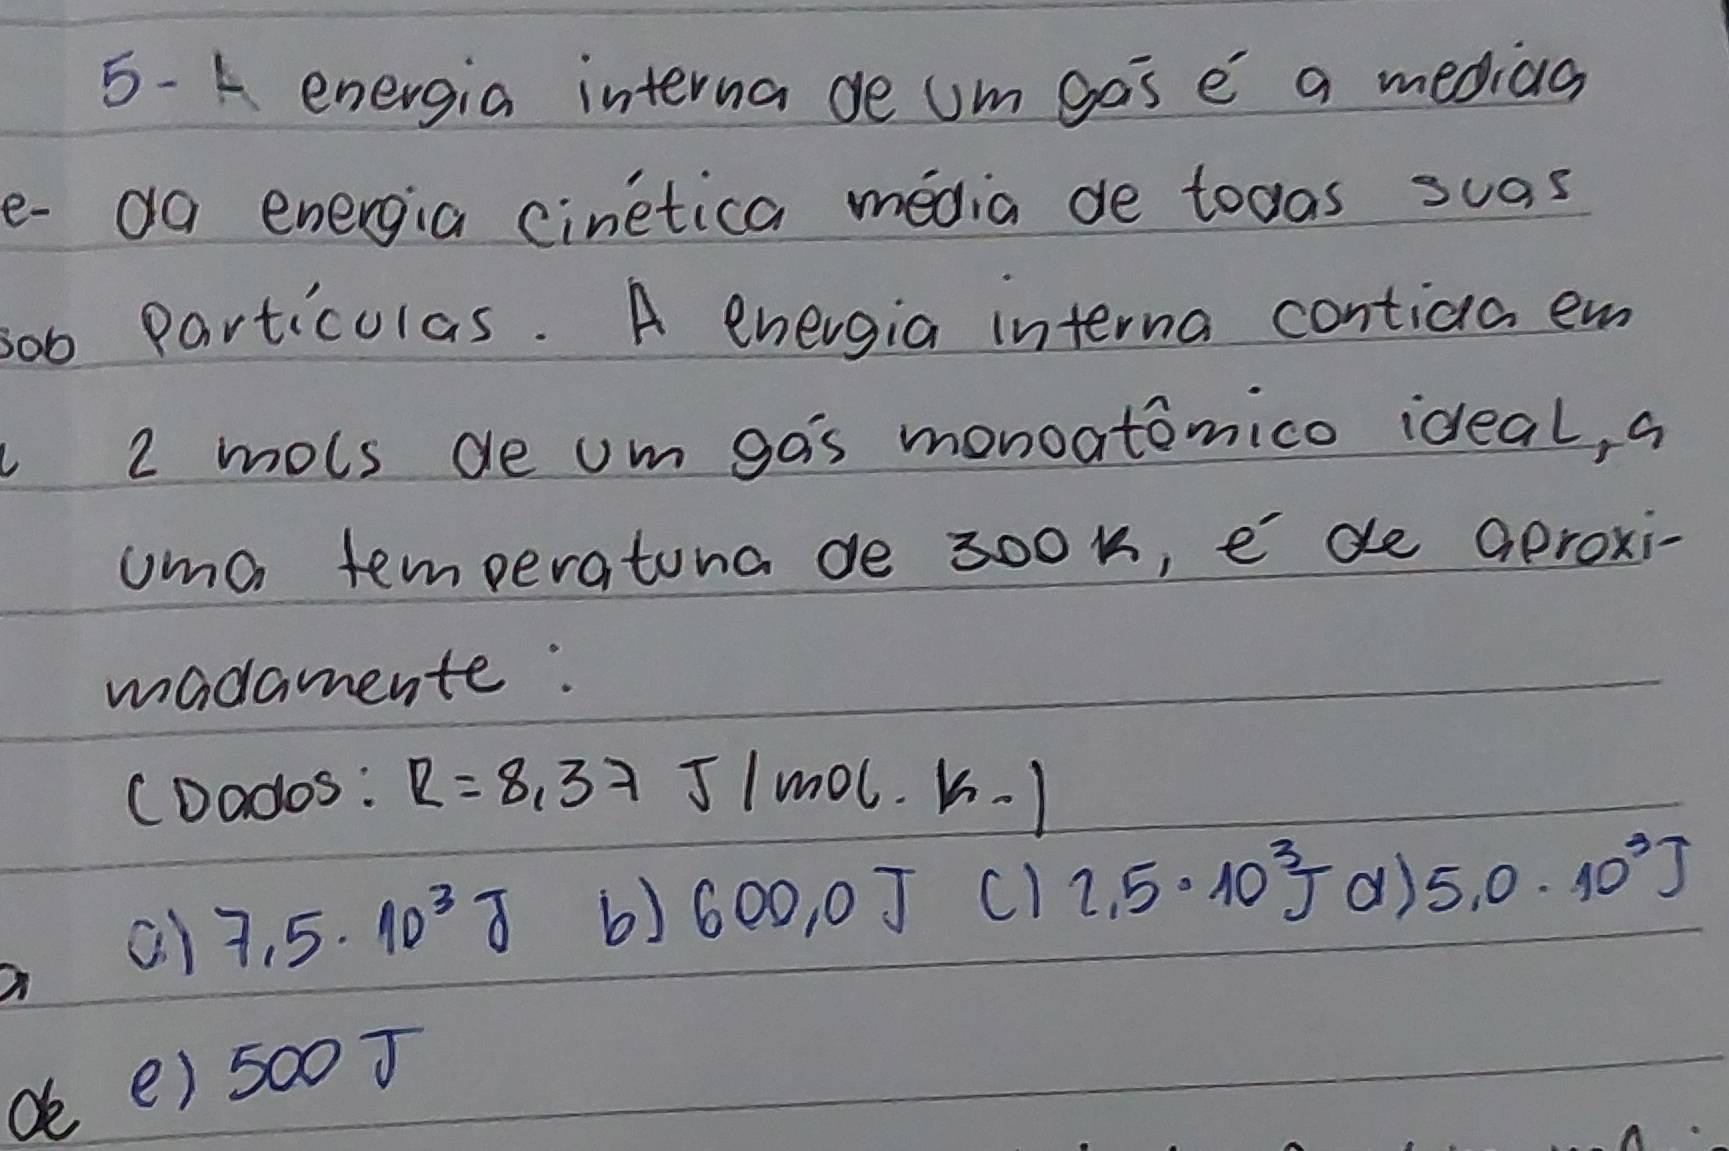 5- A energia interna de um gás é a medida
e- da energia cinética média de todas suas
sob partículas. A energia interna contida em
2 mols de um gás monoatômico ideal, a
uma temperatuna de 300K, é de aproxi-
madamente:
(Dados: R=8,37 J/mol.K.)
a) 7,5.10³ J b) 600,0 J c) 2,5.10³J d) 5,0.10³J
a
e) 500 J
de